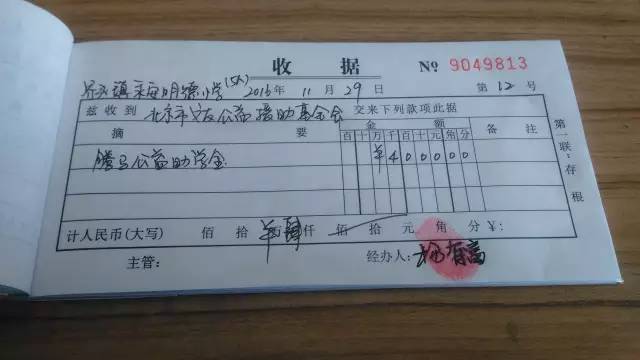 收 据 № 9049813
镇 明德小学 2016年 11月 29日 第 12 号
兹 收 到 北京市 公益援助基金会 交来下列款项此据
摘 要 金 额 备 注
百 十 万 千 百 十 元 角 分
腾马公益助学金 ¥ 4 0 0 0 0 0
计人民币(大写) 佰 拾 羊肆仟 佰 拾 元 角 分 ¥:
主管: 经办人: 有高
第一联:存根